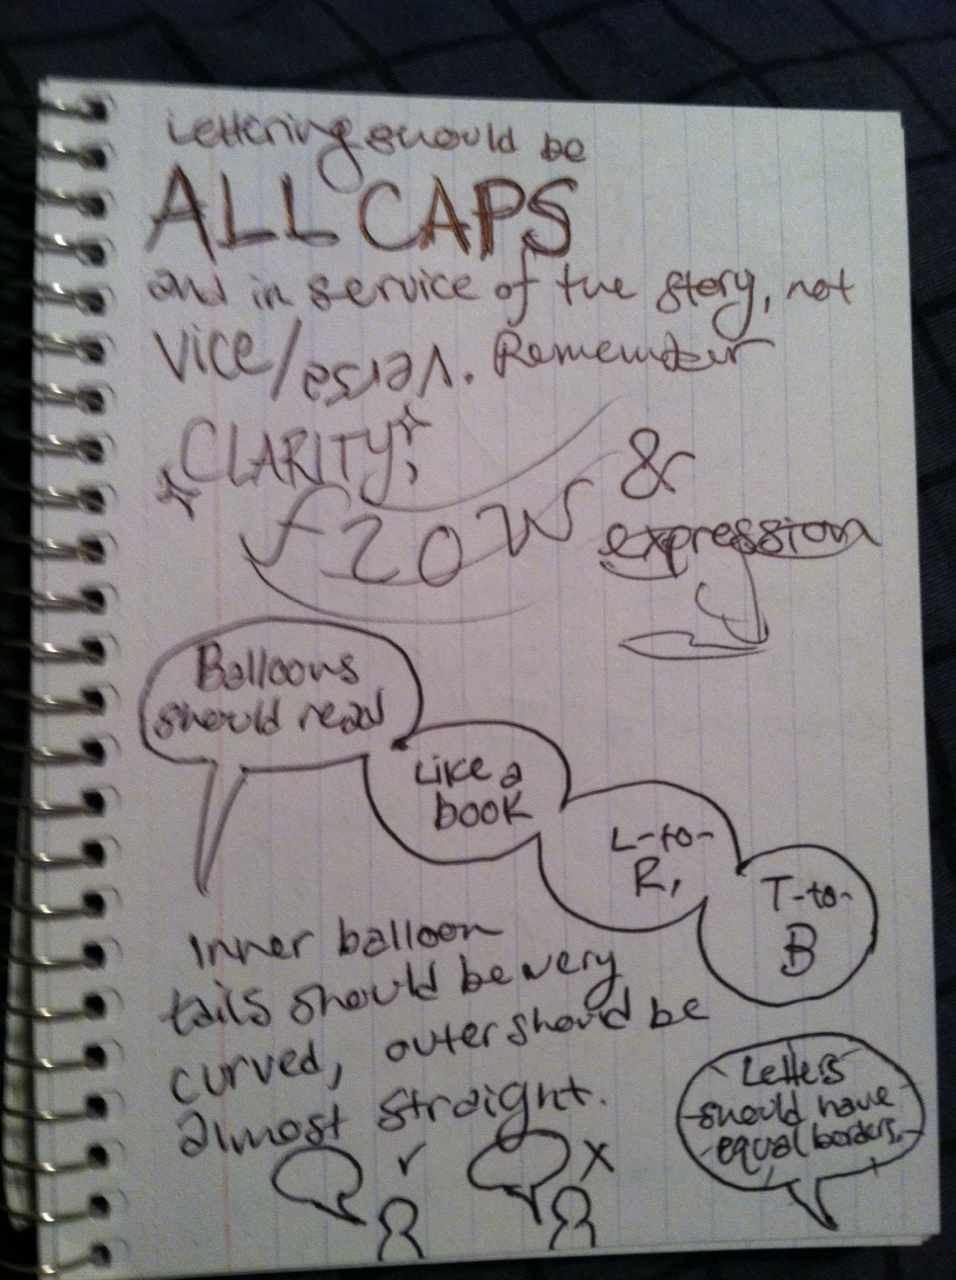 Lettering should be
ALL CAPS
and in service of the story, not
vice/versa. Remember
CLARITY,
flow &
expression
Balloons
should read
Like a
book
L-to-
R,
T-to-
B
Inner balloon
tails should be very
curved, outer should be
almost straight.
Letters
should have
equal borders.